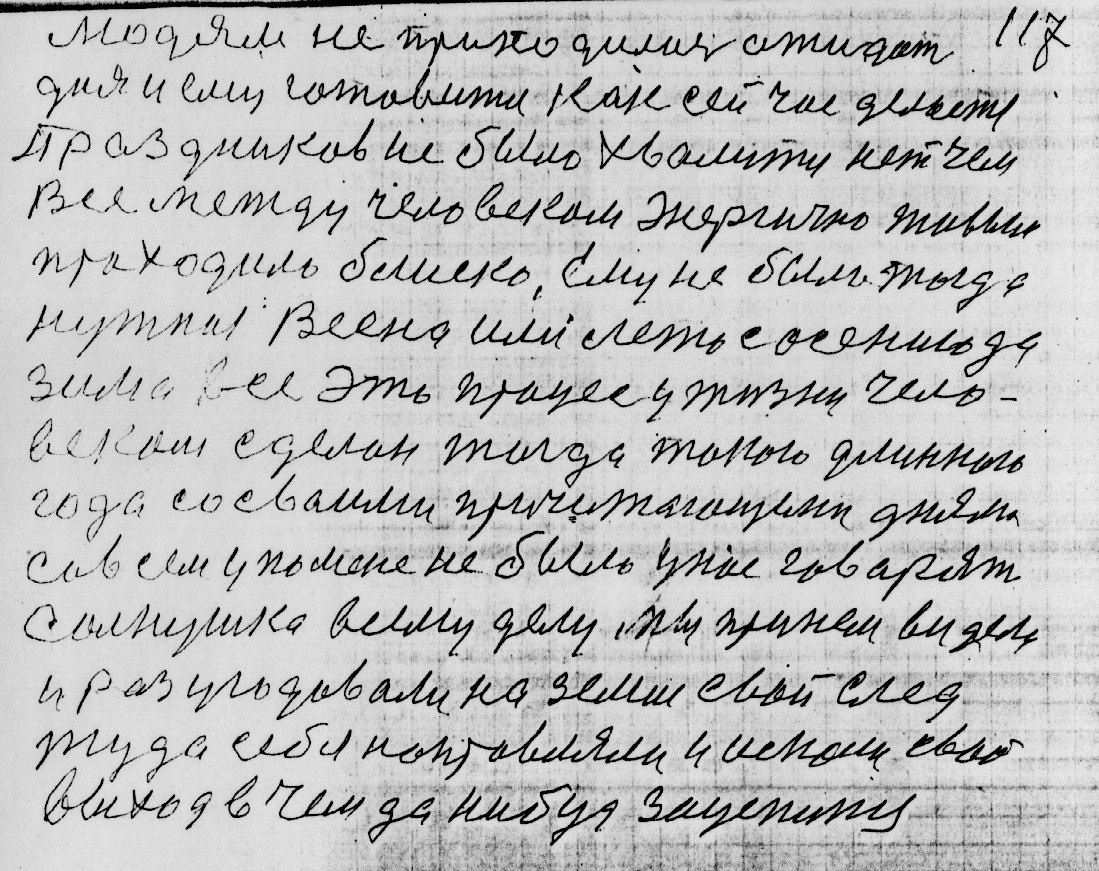 людям не приходилися ожидат 117
дня и ему готовити как сей час делаети
Праздников не было хвалити нет чем
Все между человеком энергично
проходило близко, Ему не было тогда
нужная Весна или лето с осению да
зима все это процес у жизни чело-
веком сделан тогда такого длинного
года со своими причитающими днями
совсем у помене не было у нас говарят
Солнушка всему делу, при нем видели
и разугодовали на земли свой след
туда себя направляли и искали свой
выход в чем да нибуд зацепитис